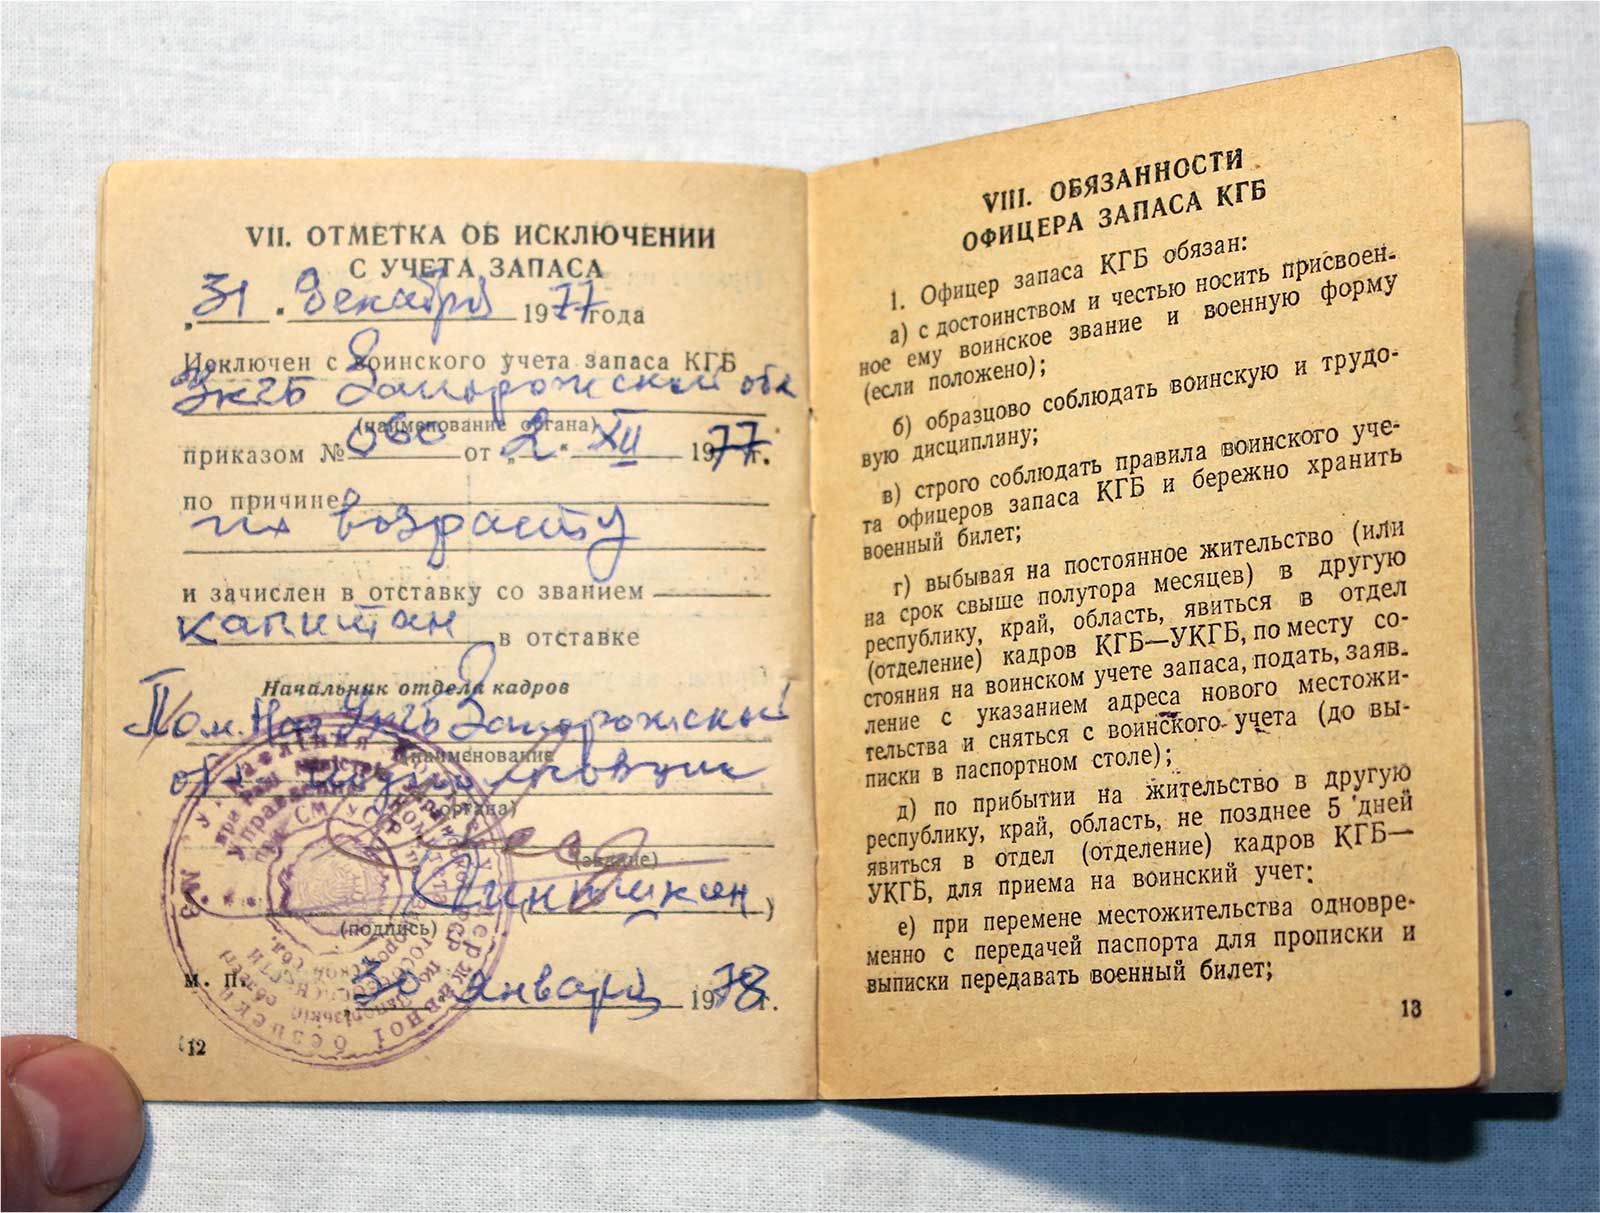 VII. ОТМЕТКА ОБ ИСКЛЮЧЕНИИ
С УЧЕТА ЗАПАСА
„31“ декабря 1977 года
Исключен с воинского учета запаса КГБ
УКГБ Запорожской обл
(наименование органа)
приказом № от „2“ XII 1977 г.
по причине
по возрасту
и зачислен в отставку со званием
капитан в отставке
Начальник отдела кадров
Пом. Нач УКГБ Запорожской
(наименование
обл. подполковник
органа)
(звание)
(подпись)
М. П. „30“ января 1978 г.
12
VIII. ОБЯЗАННОСТИ
ОФИЦЕРА ЗАПАСА КГБ
1. Офицер запаса КГБ обязан:
а) с достоинством и честью носить присвоен-
ное ему воинское звание и военную форму
(если положено);
б) образцово соблюдать воинскую и трудо-
вую дисциплину;
в) строго соблюдать правила воинского уче-
та офицеров запаса КГБ и бережно хранить
военный билет;
г) выбывая на постоянное жительство (или
на срок свыше полутора месяцев) в другую
республику, край, область, явиться в отдел
(отделение) кадров КГБ—УКГБ, по месту со-
стояния на воинском учете запаса, подать, заяв-
ление с указанием адреса нового местожи-
тельства и сняться с воинского учета (до вы-
писки в паспортном столе);
д) по прибытии на жительство в другую
республику, край, область, не позднее 5 дней
явиться в отдел (отделение) кадров КГБ—
УКГБ, для приема на воинский учет;
е) при перемене местожительства одновре-
менно с передачей паспорта для прописки и
выписки передавать военный билет;
13